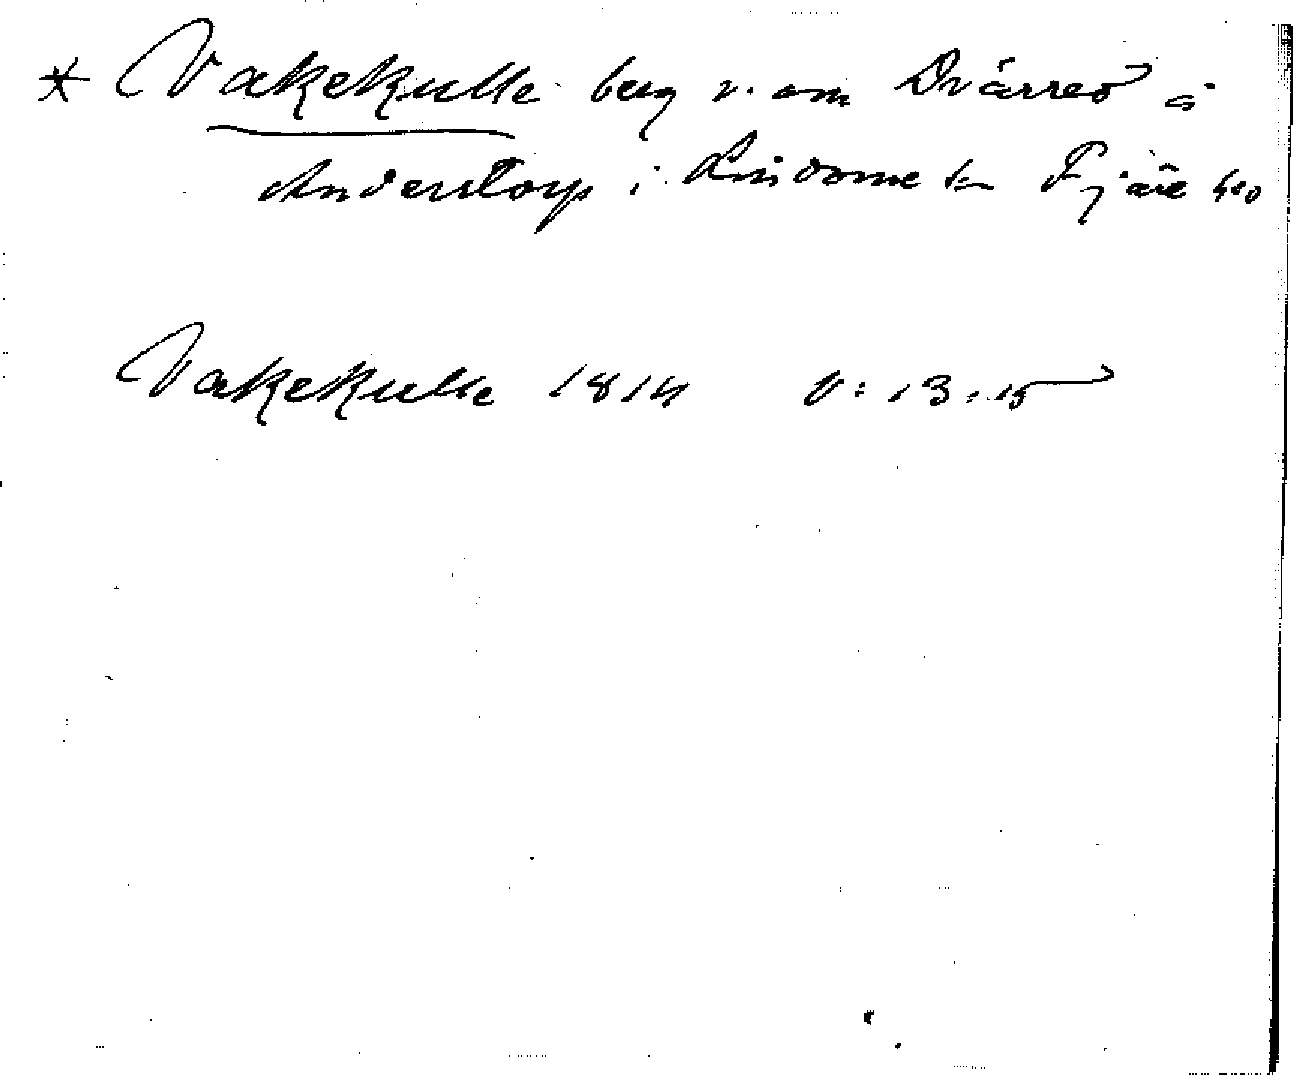 * Vakekulle berg v. om Dvärred å
Anderstorp i Lindome sn Fjäre hd
Vakekulle 1814 V: 13:15